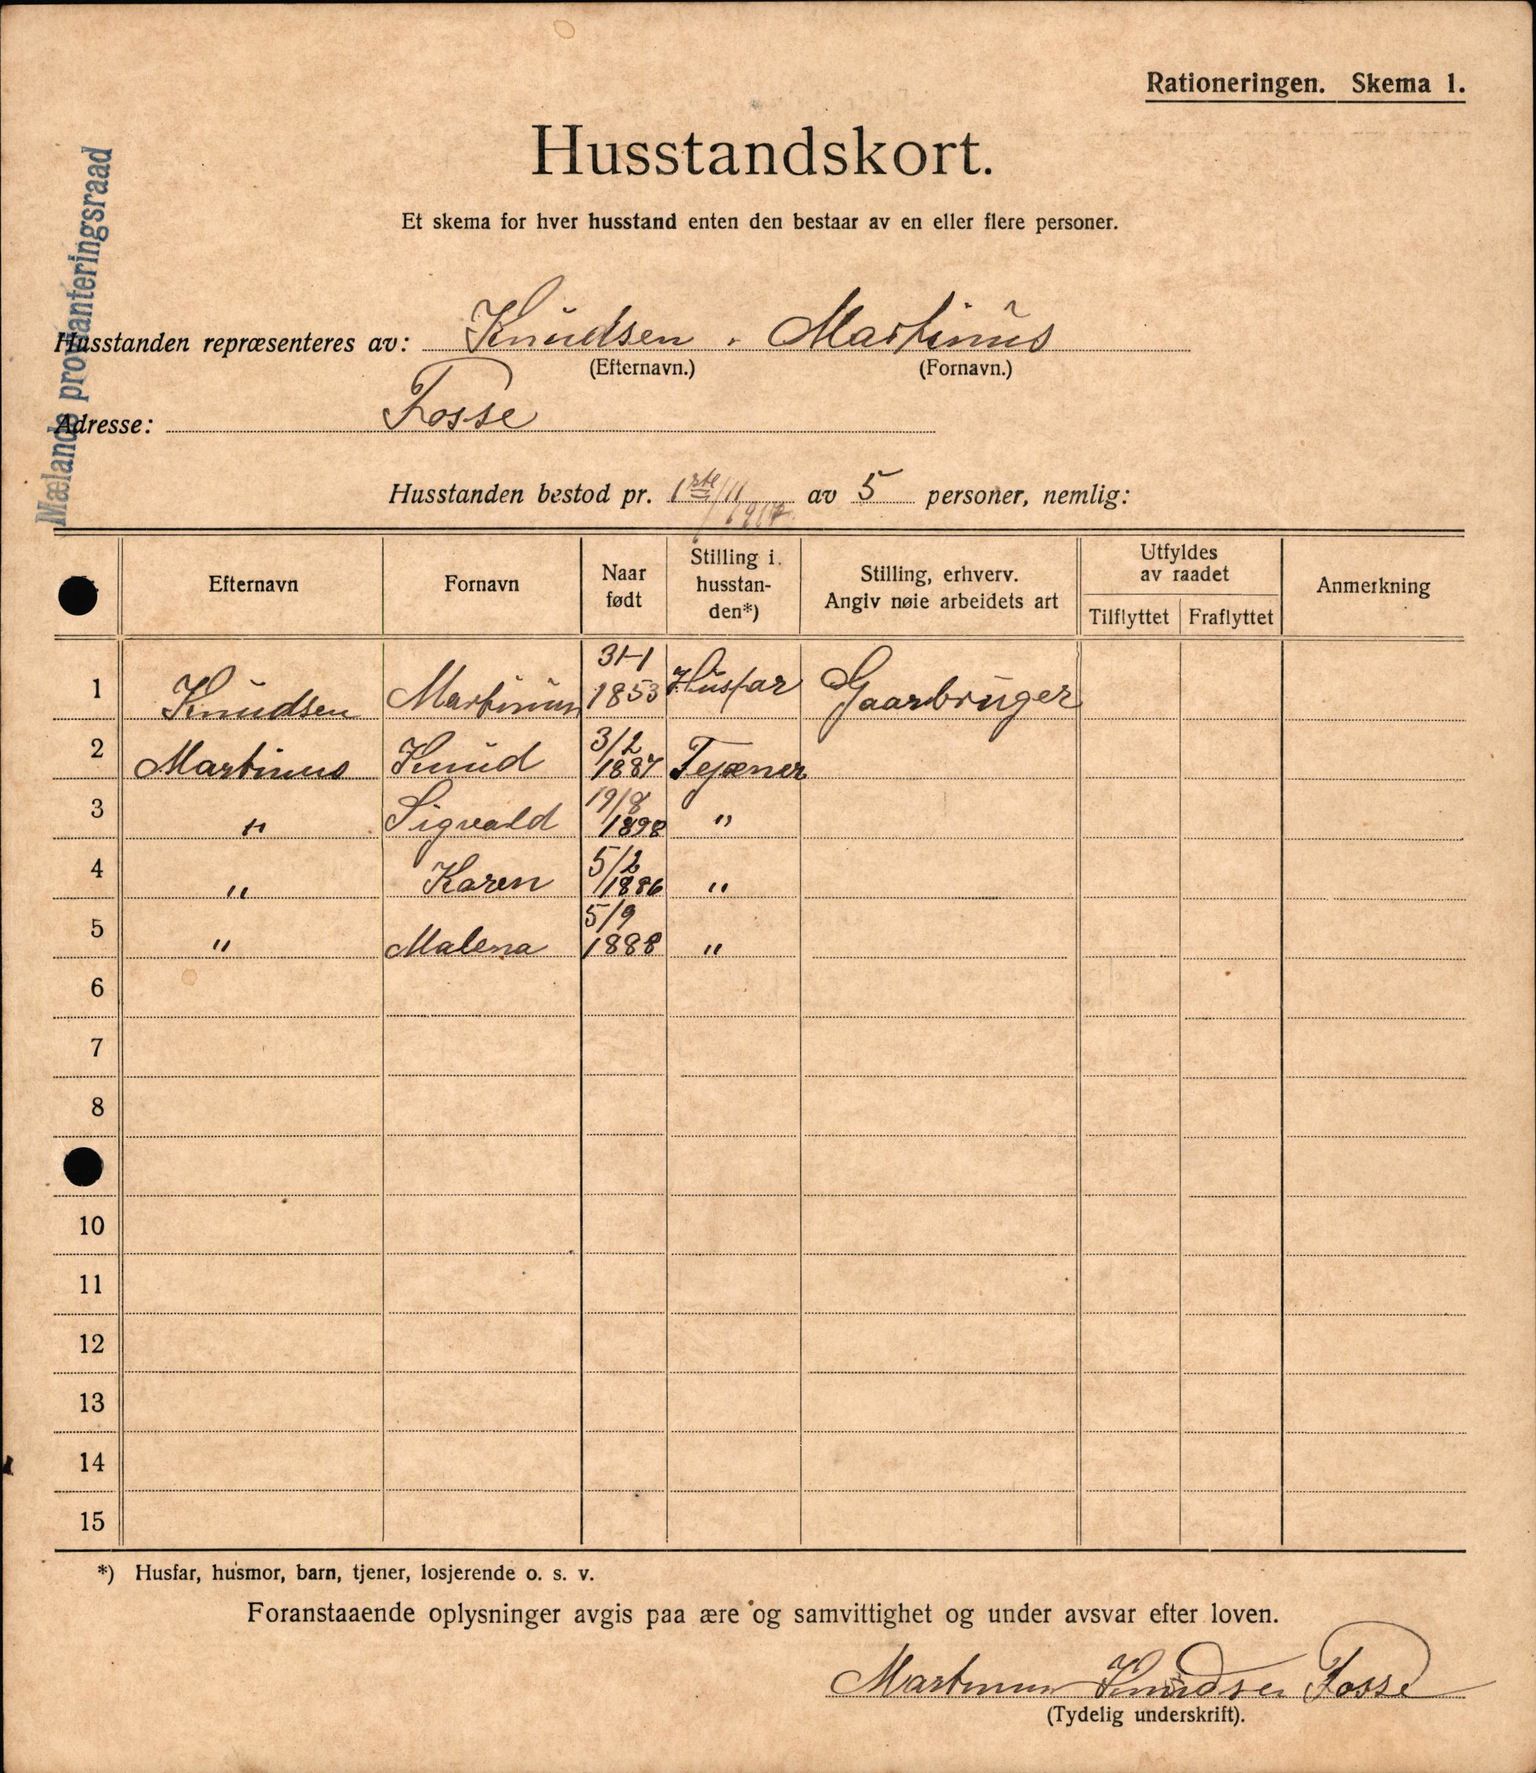 Rationeringen. Skema 1.
Husstandskort.
Et skema for hver husstand enten den bestaar av en eller flere personer.
Mælands provianteringsraad
Husstanden repræsenteres av: Knudsen . Martinus
(Efternavn.) (Fornavn.)
Adresse: Fosse
Husstanden bestod pr. 1ste/11 1917 av 5 personer, nemlig:
Efternavn Fornavn Naar født Stilling i husstan-den*) Stilling, erhverv. Angiv nøie arbeidets art Utfyldes av raadet Tilflyttet Fraflyttet Anmerkning
1 Knudsen Martinus 31-1 1853 Husfar Gaarbruger
2 Martinus Knud 3/2 1887 Tejæner
3 " Sigvald 19/8 1898 "
4 " Karen 5/2 1886 "
5 " Malena 5/9 1888 "
6
7
8
10
11
12
13
14
15
*) Husfar, husmor, barn, tjener, losjerende o. s. v.
Foranstaaende oplysninger avgis paa ære og samvittighet og under avsvar efter loven.
Martinus Knudsen Fosse
(Tydelig underskrift).